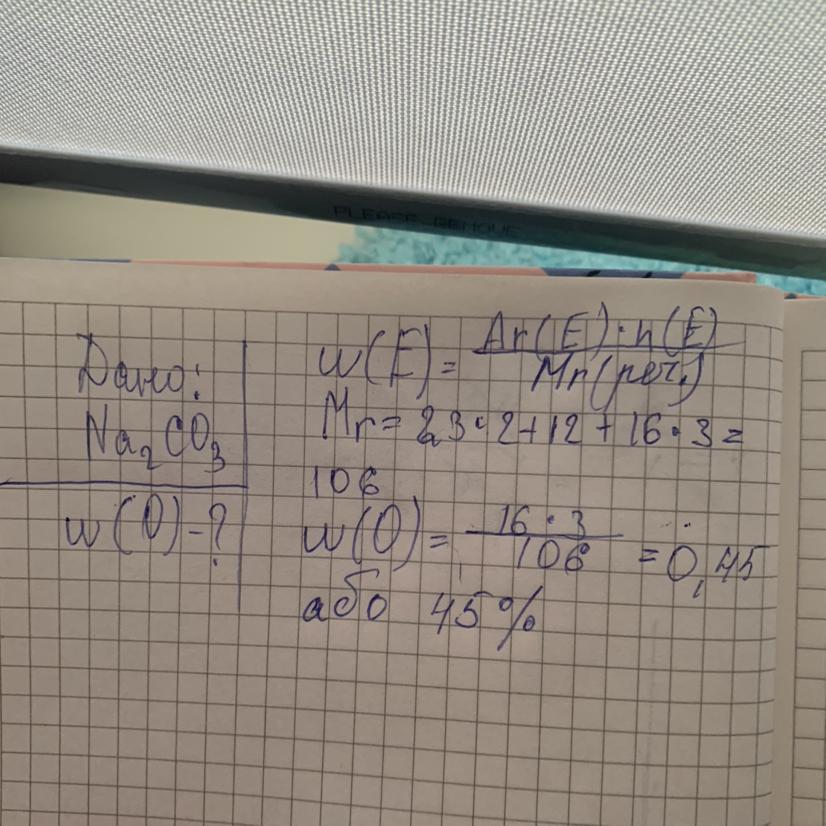 PLEASE REMOVE
Дано:
Na₂CO₃
w(O)-?
w(E) = Ar(E)·n(E) / Mr(реч.)
Mr = 23·2+12+16·3=
106
w(O) = 16·3 / 106 = 0,45
або 45%